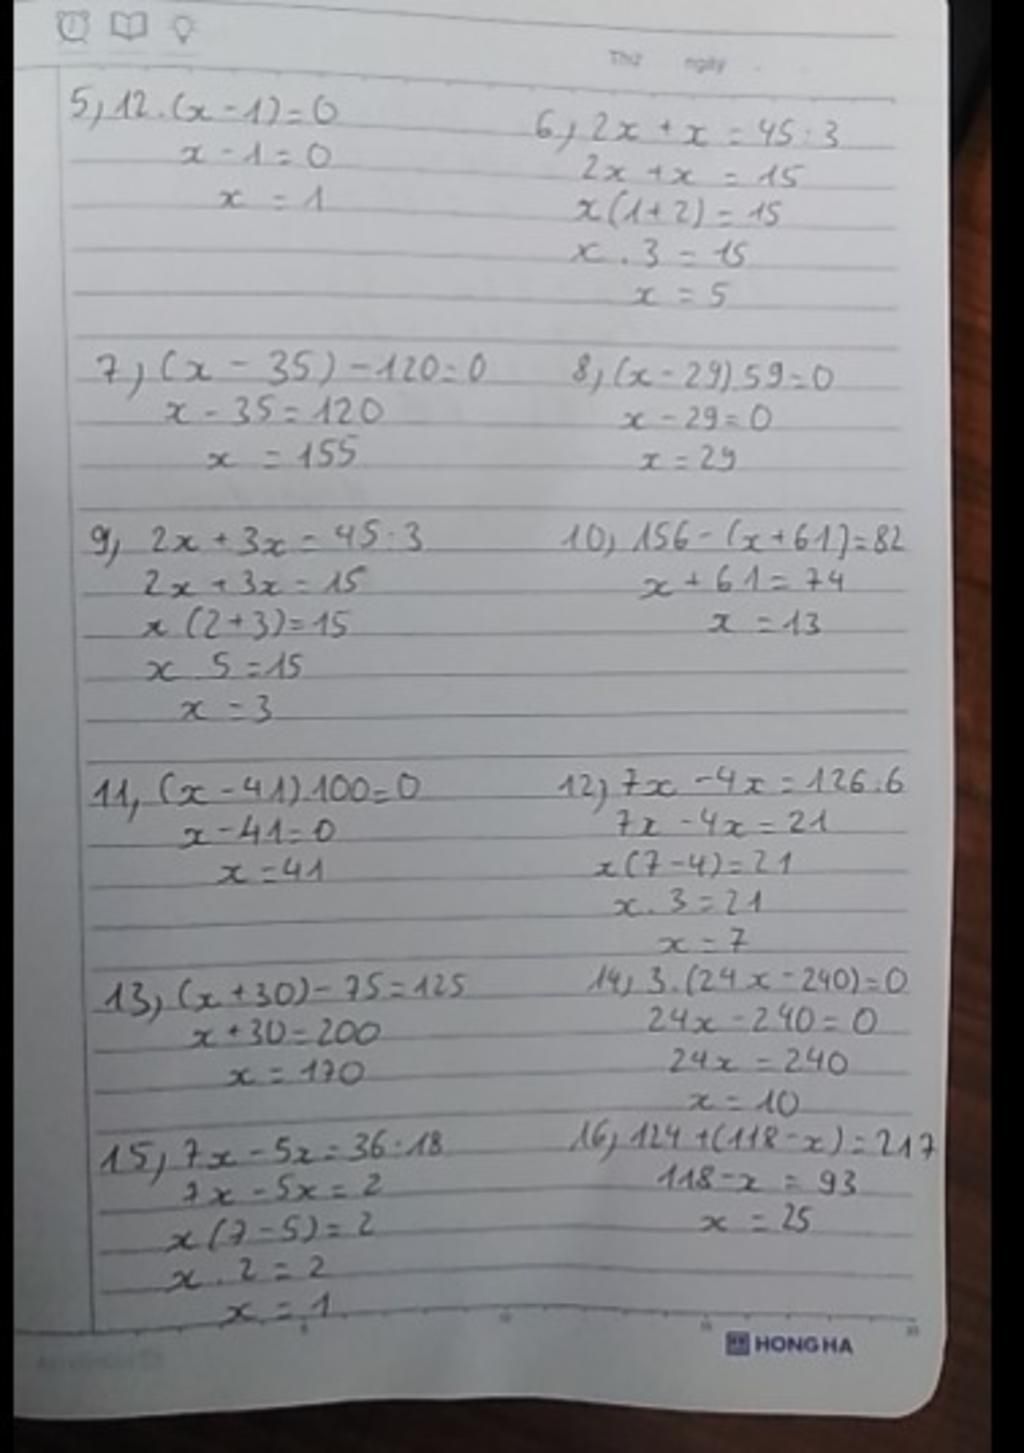 Thứ ngày
5, 12.(x - 1) = 0
x - 1 = 0
x = 1
6, 2x + x = 45 : 3
2x + x = 15
x(1+2) = 15
x . 3 = 15
x = 5
7, (x - 35) - 120 = 0
x - 35 = 120
x = 155
8, (x - 29) 59 = 0
x - 29 = 0
x = 29
9, 2x + 3x = 45 : 3
2x + 3x = 15
x (2+3) = 15
x 5 = 15
x = 3
10, 156 - (x + 61) = 82
x + 61 = 74
x = 13
11, (x - 41) 100 = 0
x - 41 = 0
x = 41
12, 7x - 4x = 126 : 6
7x - 4x = 21
x (7 - 4) = 21
x . 3 = 21
x = 7
13, (x + 30) - 75 = 125
x + 30 = 200
x = 170
14, 3.(24x - 240) = 0
24x - 240 = 0
24x = 240
x = 10
15, 7x - 5x = 36 : 18
7x - 5x = 2
x (7 - 5) = 2
x . 2 = 2
x = 1
16, 124 + (118 - x) = 217
118 - x = 93
x = 25
HONG HA